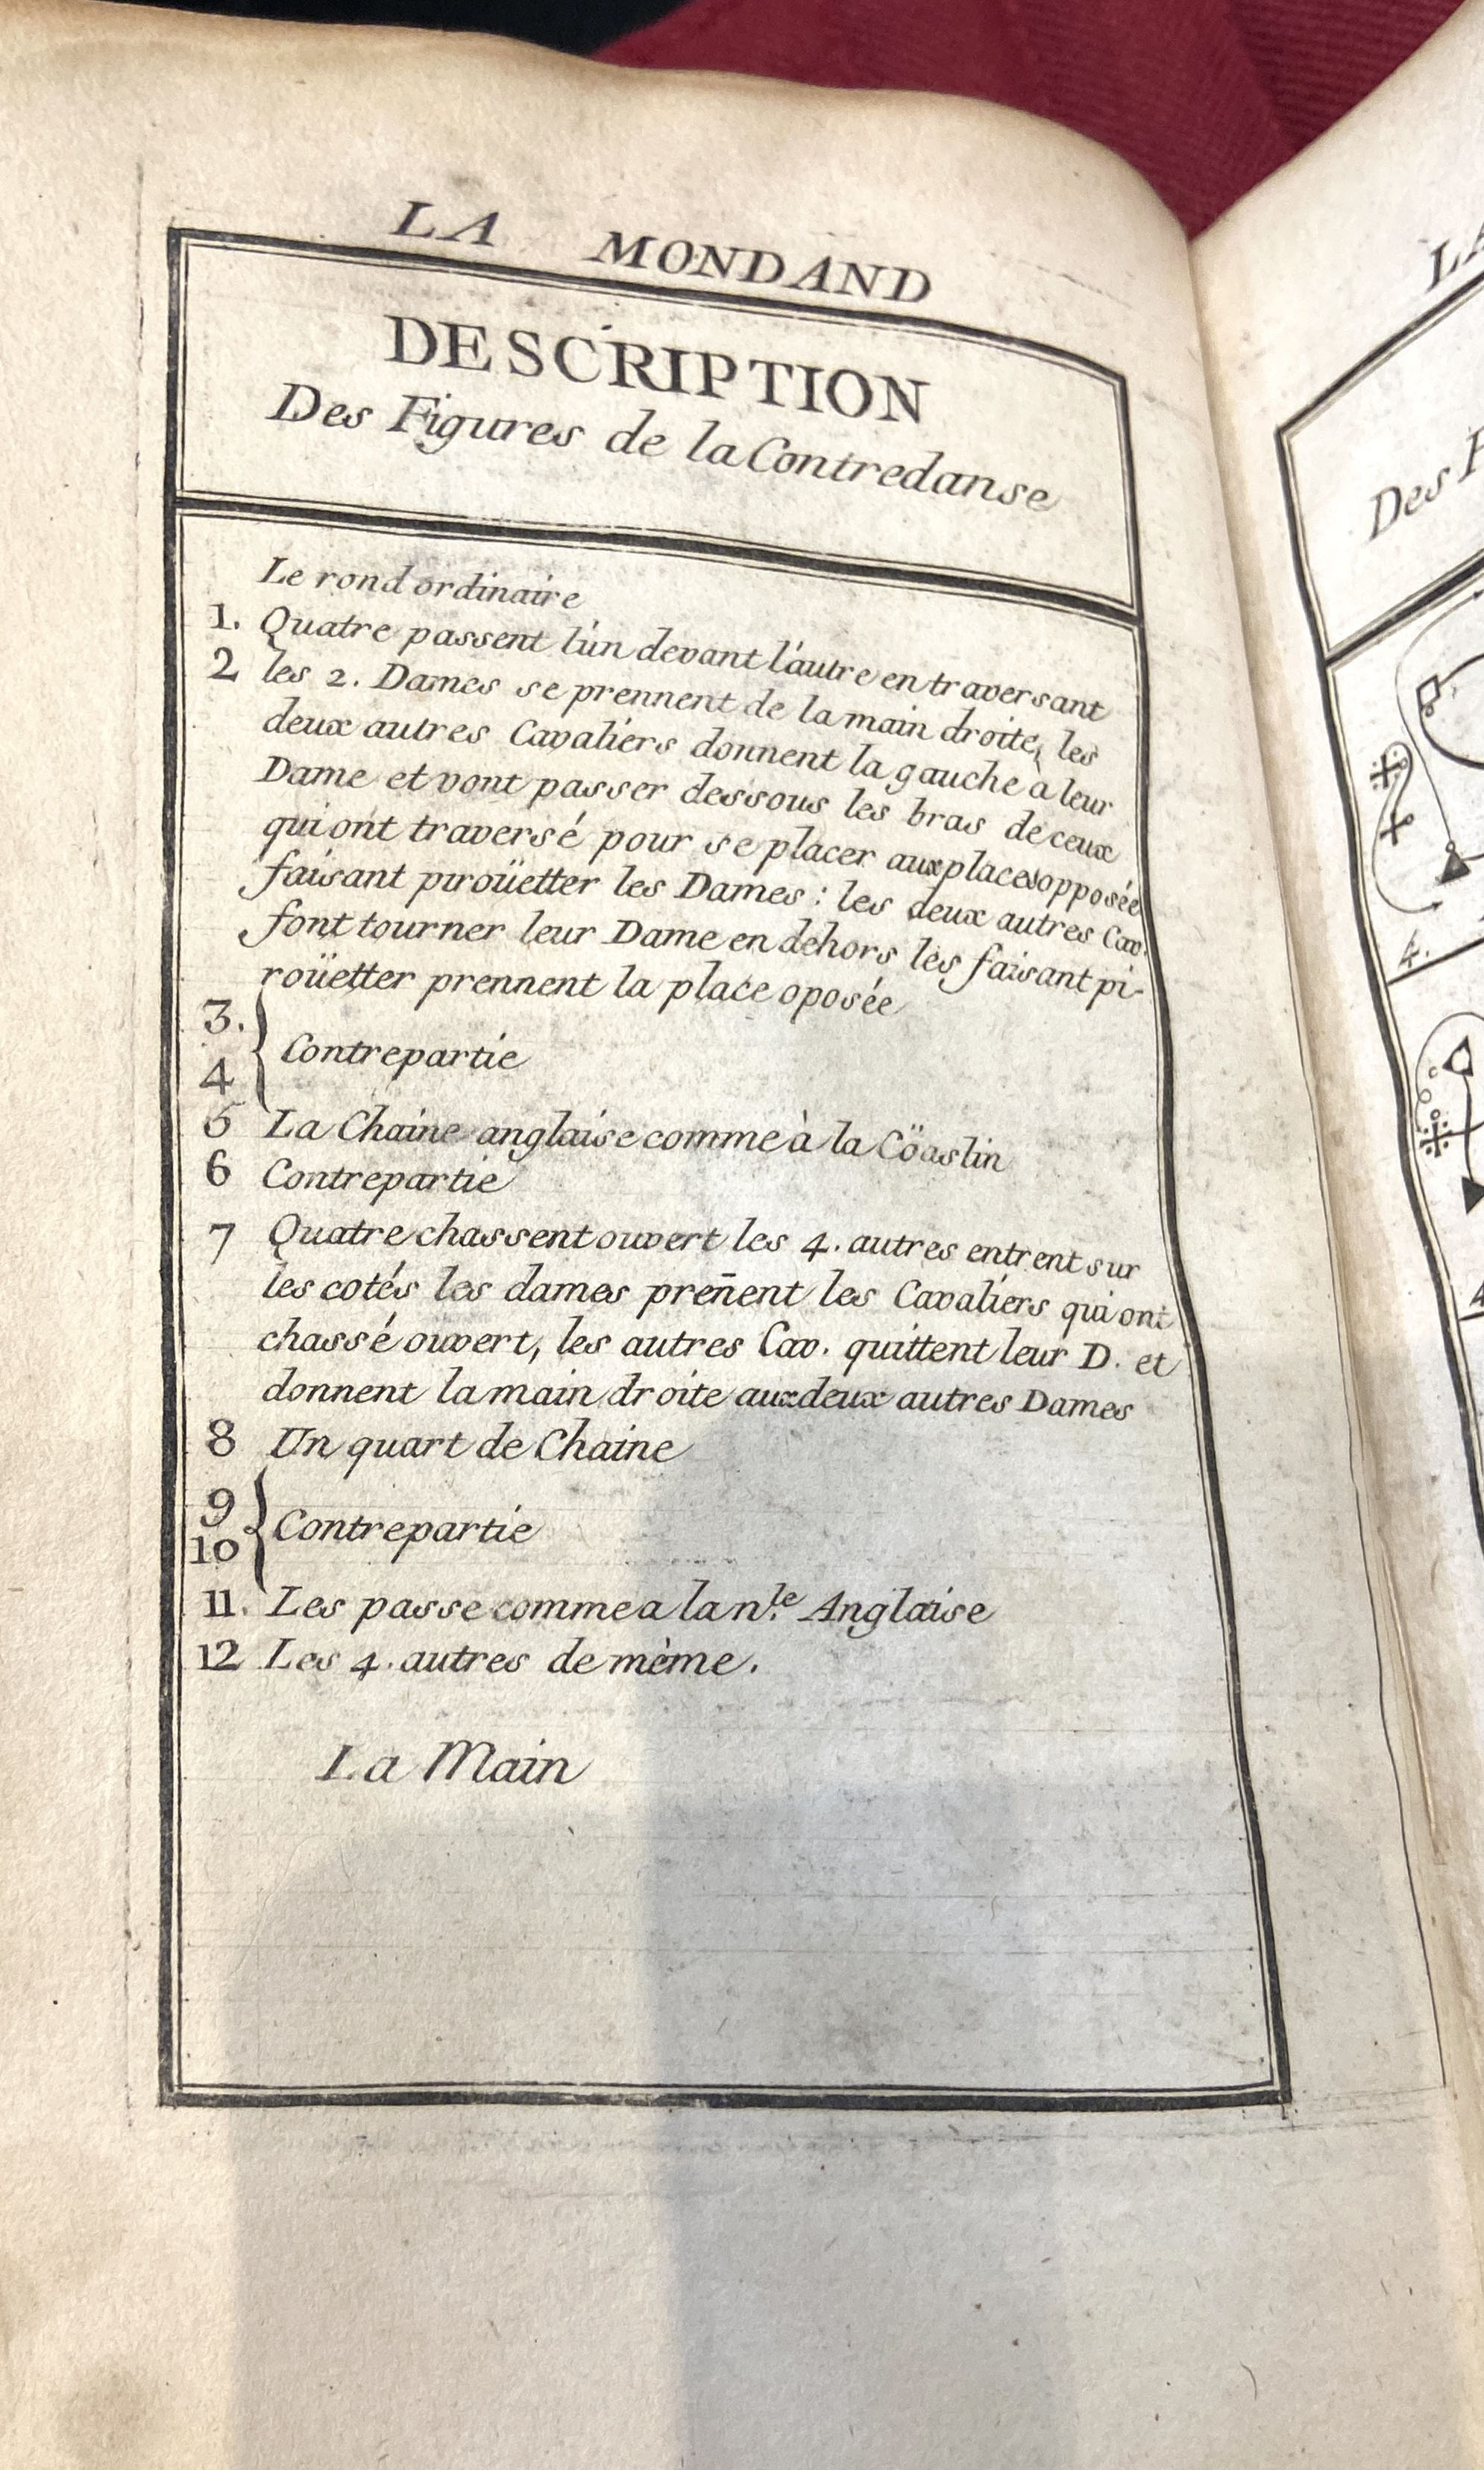 LA MONDAND
DESCRIPTION
Des Figures de la Contredanse
Le rond ordinaire
1. Quatre passent l'un devant l'autre en traversant
2 les 2. Dames se prennent de la main droite, les
deux autres Cavaliers donnent la gauche a leur
Dame et vont passer dessous les bras de ceux
qui ont traversé pour se placer aux places opposée
faisant piroüetter les Dames : les deux autres Cav.
font tourner leur Dame en dehors les faisant pi-
roüetter prennent la place oposée
3.
4 } Contrepartie
5 La Chaine anglaise comme à la Cöaslin
6 Contrepartie
7 Quatre chassent ouvert les 4. autres entrent sur
les cotés les dames preñent les Cavaliers qui ont
chassé ouvert, les autres Cav. quittent leur D. et
donnent la main droite aux deux autres Dames
8 Un quart de Chaine
9
10 } Contrepartie
11. Les passe comme a la n.le Anglaise
12 Les 4. autres de mème.
La Main
Des
4.